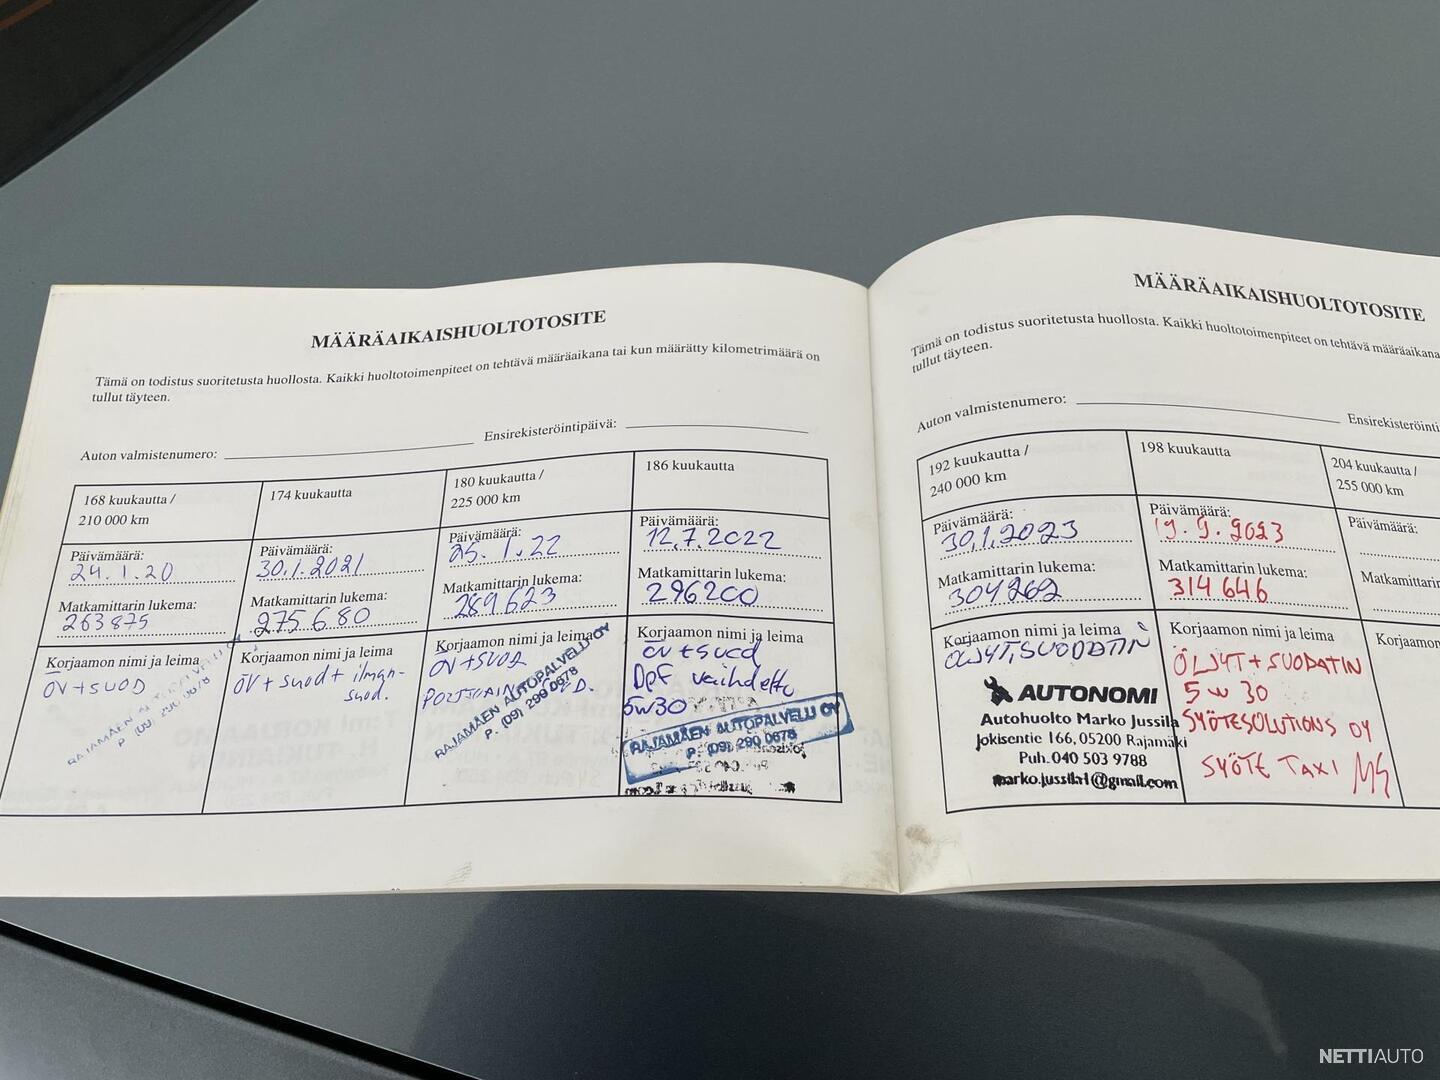 MÄÄRÄAIKAISHUOLTOTOSITE
Tämä on todistus suoritetusta huollosta. Kaikki huoltotoimenpiteet on tehtävä määräaikana tai kun määrätty kilometrimäärä on
tullut täyteen.
Auton valmistenumero:
Ensirekisteröintipäivä:
168 kuukautta /
210 000 km
Päivämäärä:
24.1.20
Matkamittarin lukema:
263875
Korjaamon nimi ja leima
ÖV+SUOD
RAJAMÄEN AUTOPALVELU OY
P. (09) 290 0678
174 kuukautta
Päivämäärä:
30.1.2021
Matkamittarin lukema:
275680
Korjaamon nimi ja leima
ÖV + suod + ilman-
suod.
180 kuukautta /
225 000 km
Päivämäärä:
25.1.22
Matkamittarin lukema:
289623
Korjaamon nimi ja leima
ÖV+SUOD
RAJAMÄEN AUTOPALVELU OY
P. (09) 290 0678
186 kuukautta
Päivämäärä:
12.7.2022
Matkamittarin lukema:
296200
Korjaamon nimi ja leima
öv+suod
DPF vaihdettu
5W30
RAJAMÄEN AUTOPALVELU OY
P. (09) 290 0678
MÄÄRÄAIKAISHUOLTOTOSITE
Tämä on todistus suoritetusta huollosta. Kaikki huoltotoimenpiteet on tehtävä määräaikana
tullut täyteen.
Auton valmistenumero:
Ensirekisteröinti
192 kuukautta /
240 000 km
Päivämäärä:
30.1.2023
Matkamittarin lukema:
304262
Korjaamon nimi ja leima
ÖLJYT, SUODATIN
AUTONOMI
Autohuolto Marko Jussila
Jokisentie 166, 05200 Rajamäki
Puh. 040 503 9788
marko.jussila1@gmail.com
198 kuukautta
Päivämäärä:
19.9.2023
Matkamittarin lukema:
314646
Korjaamon nimi ja leima
ÖLJYT + SUODATIN
5W30
SYÖTESOLUTIONS OY
SYÖTE TAXI
204 kuukautta /
255 000 km
Päivämäärä:
Matkamittarin
Korjaamon
NETTIAUTO